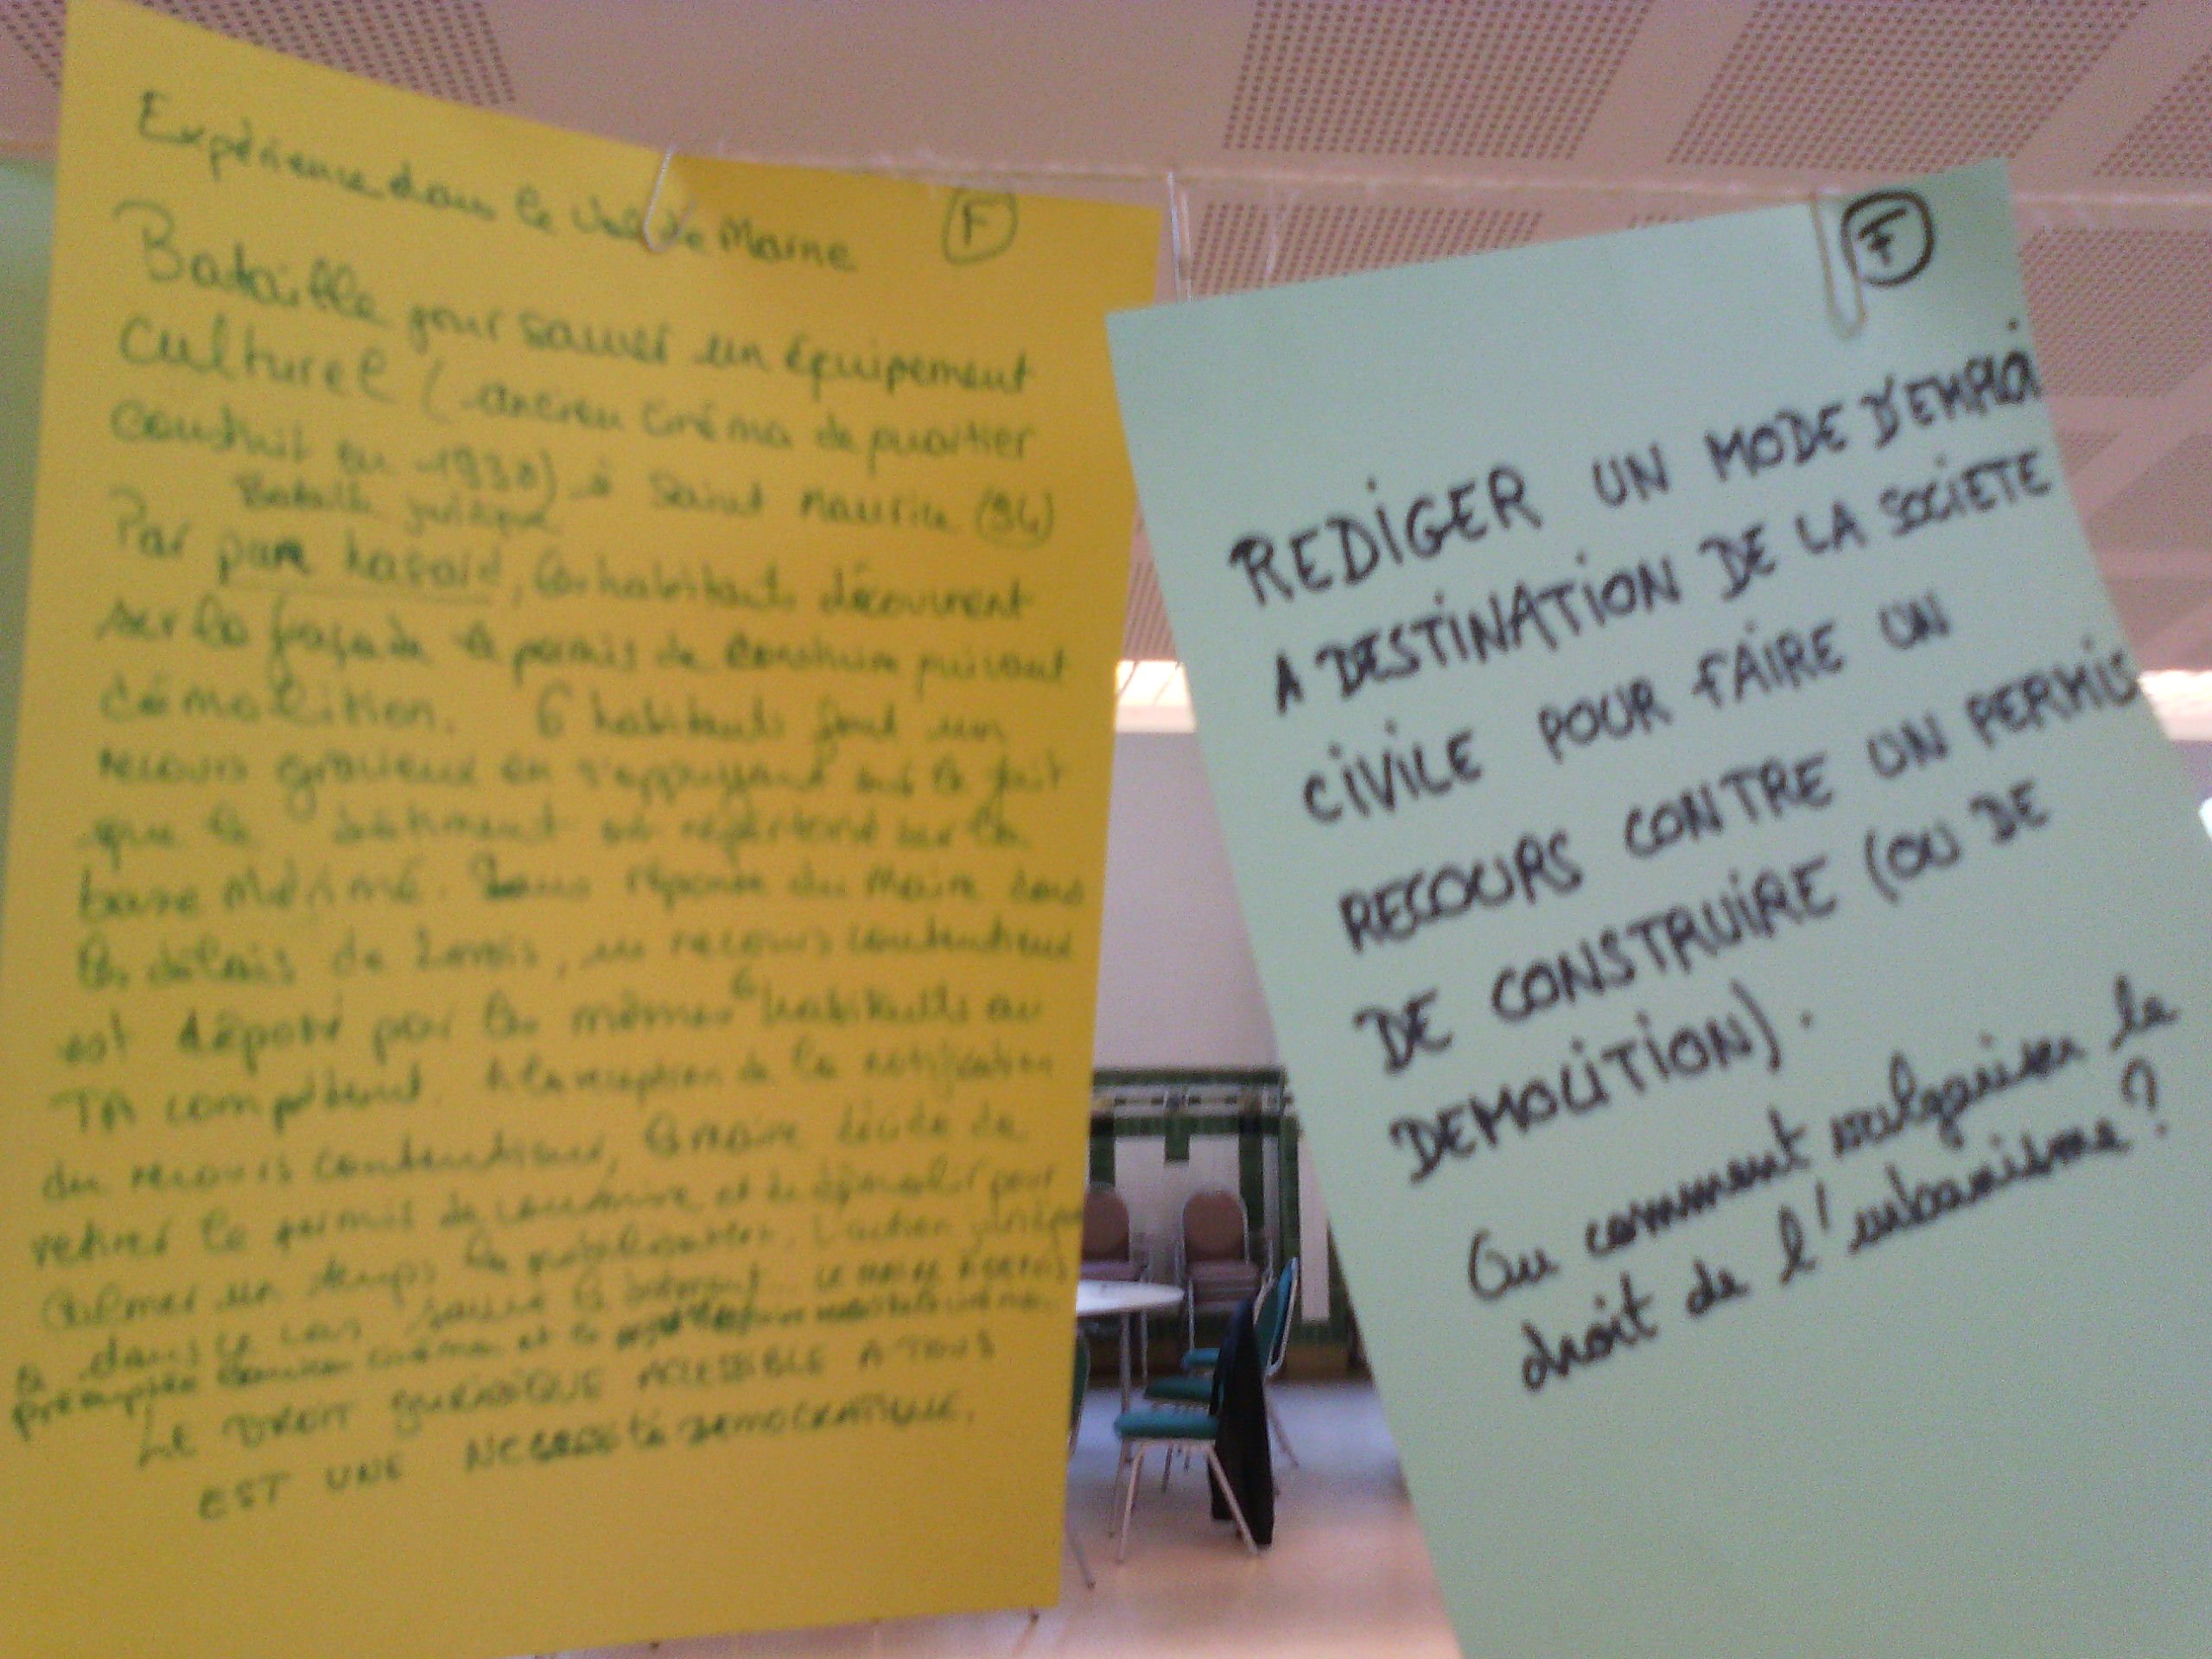 Expérience dans le Val de Marne
F
Bataille pour sauver un équipement
culturel (ancien cinéma de quartier
construit en 1930) à Saint Maurice (94)
Bataille juridique
Par pure hasard, les habitants découvrent
sur la façade le permis de construire suivant
démolition. 6 habitants font un
recours gracieux en s'appuyant sur le fait
que le bâtiment est répertorié sur la
base Mérimé. Sans réponse du Maire dans
les délais de 2 mois, un recours contentieux
est déposé par les mêmes 6 habitants au
TA compétent. A la reception de la notification
du recours contentieux, le maire décide de
retirer le permis de construire et de démolir pour
calmer un temps la mobilisation. L'action juridique
a dans ce cas sauvé le bâtiment. Le maire
préempte cinéma et le
LE DROIT JURIDIQUE ACCESSIBLE A TOUS
EST UNE NECESSITé DEMOCRATIQUE.
F
REDIGER UN MODE D'EMPLOI
A DESTINATION DE LA SOCIETE
CIVILE POUR FAIRE UN
RECOURS CONTRE UN PERMIS
DE CONSTRUIRE (OU DE
DEMOLITION).
Ou comment vulgariser le
droit de l'urbanisme?